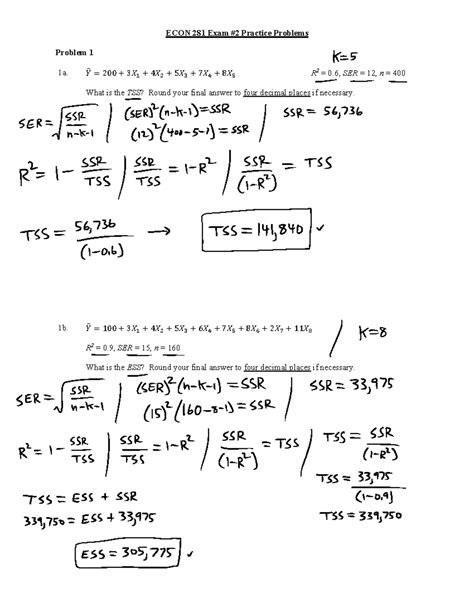 ECON 281 Exam #2 Practice Problems
Problem 1
K=5
1a. Ŷ = 200 + 3X₁ + 4X₂ + 5X₃ + 7X₄ + 8X₅ R² = 0.6, SER = 12, n = 400
What is the TSS? Round your final answer to four decimal places if necessary.
SER = √(SSR/(n-k-1)) | (SER)²(n-k-1) = SSR | SSR = 56,736
(12)²(400-5-1) = SSR
R² = 1 - SSR/TSS | SSR/TSS = 1-R² | SSR/(1-R²) = TSS
TSS = 56,736/(1-0.6) → TSS = 141,840 ✓
1b. Ŷ = 100 + 3X₁ + 4X₂ + 5X₃ + 6X₄ + 7X₅ + 8X₆ + 2X₇ + 11X₈ | K=8
R² = 0.9, SER = 15, n = 160
What is the ESS? Round your final answer to four decimal places if necessary.
SER = √(SSR/(n-k-1)) | (SER)²(n-k-1) = SSR | SSR = 33,975
(15)²(160-8-1) = SSR
R² = 1 - SSR/TSS | SSR/TSS = 1-R² | SSR/(1-R²) = TSS | TSS = SSR/(1-R²)
TSS = 33,975/(1-0.9)
TSS = ESS + SSR
339,750 = ESS + 33,975 TSS = 339,750
ESS = 305,775 ✓